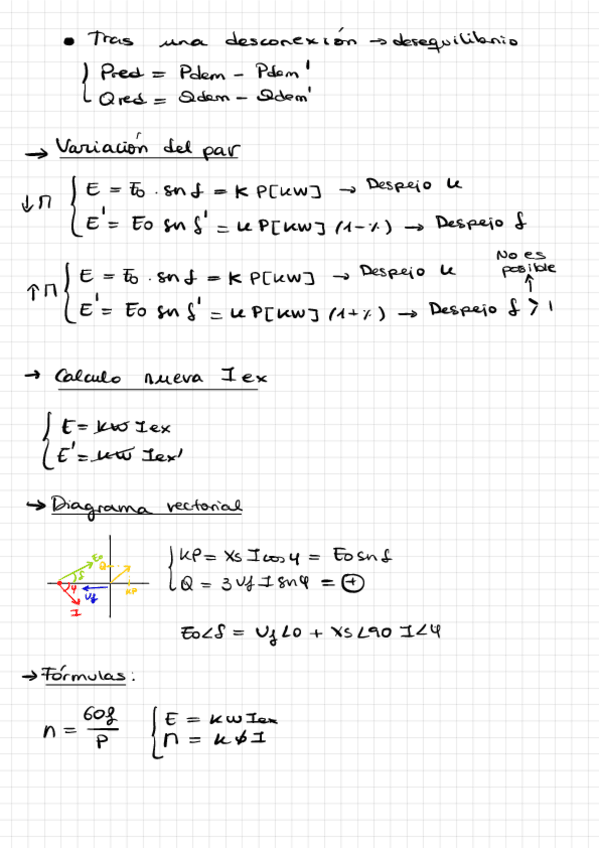 • Tras una desconexión → desequilibrio
Pred = Pdem - Pdem'
Qred = Qdem - Qdem'
→ Variación del par
↓Π { E = Eo . sn δ = K P[KW] → Despejo K
E' = Eo sn δ' = K P[KW] (1-%) → Despejo δ
No es posible
↑Π { E = Eo . sn δ = K P[KW] → Despejo K
E' = Eo sn δ' = K P[KW] (1+%) → Despejo δ > 1
→ Calculo nueva Iex
E = kw Iex
E' = kw Iex'
→ Diagrama vectorial
Eo
δ
Q
φ
Uf
KP
I
KP = Xs I cos φ = Eo sn δ
Q = 3 Uf I sn φ = ⊕
Eo∠δ = Uf∠0 + Xs∠90 I∠φ
→ Fórmulas:
n = 60f / P
E = kw Iex
Π = k ϕ I